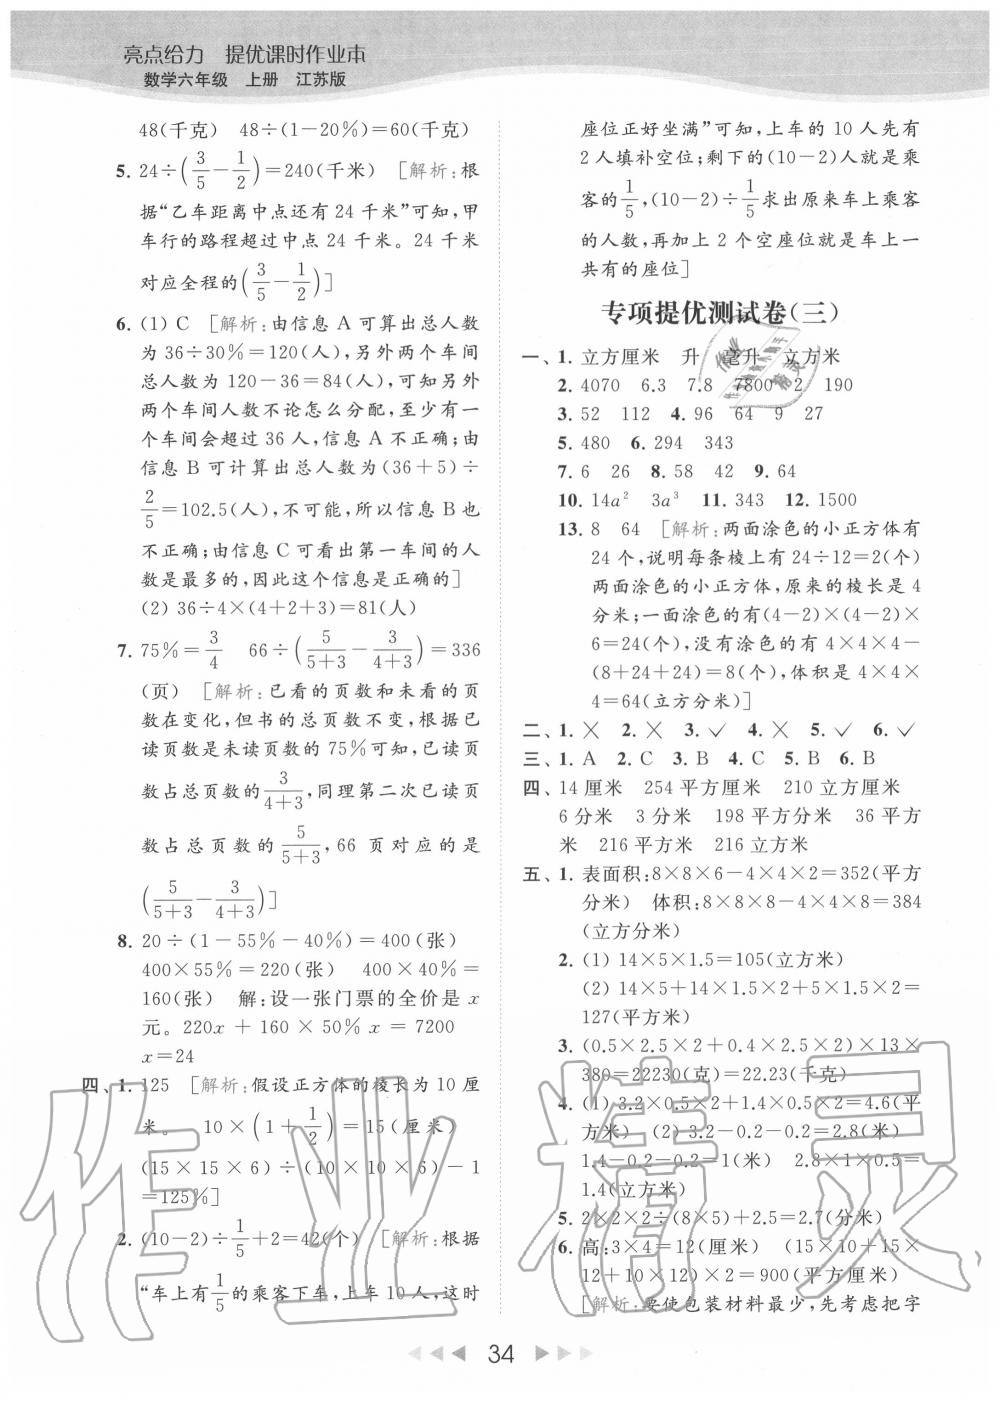 亮点给力 提优课时作业本
数学六年级 上册 江苏版
48(千克) 48÷(1-20%)=60(千克)
5. 24÷(3/5-1/2)=240(千米) [解析:根
据“乙车距离中点还有 24 千米”可知,甲
车行的路程超过中点 24 千米。24 千米
对应全程的(3/5-1/2)]
6. (1) C [解析:由信息 A 可算出总人数
为 36÷30%=120(人),另外两个车间
总人数为 120-36=84(人),可知另外
两个车间人数不论怎么分配,至少有一
个车间会超过 36 人,信息 A 不正确;由
信息 B 可计算出总人数为(36+5)÷
2/5=102.5(人),不可能,所以信息 B 也
不正确;由信息 C 可看出第一车间的人
数是最多的,因此这个信息是正确的]
(2) 36÷4×(4+2+3)=81(人)
7. 75%=3/4 66÷(5/(5+3)-3/(4+3))=336
(页) [解析:已看的页数和未看的页
数在变化,但书的总页数不变,根据已
读页数是未读页数的 75%可知,已读页
数占总页数的3/(4+3),同理第二次已读页
数占总页数的5/(5+3),66 页对应的是
(5/(5+3)-3/(4+3))]
8. 20÷(1-55%-40%)=400(张)
400×55%=220(张) 400×40%=
160(张) 解:设一张门票的全价是 x
元。220x+160×50%x=7200
x=24
四、1. 125 [解析:假设正方体的棱长为 10 厘
米。 10×(1+1/2)=15(厘米)
(15×15×6)÷(10×10×6)-1
=125%]
2. (10-2)÷1/5+2=42(个) [解析:根据
“车上有1/5的乘客下车,上车 10 人,这时
座位正好坐满”可知,上车的 10 人先有
2 人填补空位;剩下的(10-2)人就是乘
客的1/5,(10-2)÷1/5求出原来车上乘客
的人数,再加上 2 个空座位就是车上一
共有的座位]
专项提优测试卷(三)
一、1. 立方厘米 升 毫升 立方米
2. 4070 6.3 7.8 7800 2 190
3. 52 112 4. 96 64 9 27
5. 480 6. 294 343
7. 6 26 8. 58 42 9. 64
10. 14a² 3a³ 11. 343 12. 1500
13. 8 64 [解析:两面涂色的小正方体有
24 个,说明每条棱上有 24÷12=2(个)
两面涂色的小正方体,原来的棱长是 4
分米;一面涂色的有(4-2)×(4-2)×
6=24(个),没有涂色的有 4×4×4-
(8+24+24)=8(个),体积是 4×4×
4=64(立方分米)]
二、1. × 2. × 3. ✓ 4. × 5. ✓ 6. ✓
三、1. A 2. C 3. B 4. C 5. B 6. B
四、14 厘米 254 平方厘米 210 立方厘米
6 分米 3 分米 198 平方分米 36 平方
米 216 平方米 216 立方米
五、1. 表面积:8×8×6-4×4×2=352(平方
分米) 体积:8×8×8-4×4×8=384
(立方分米)
2. (1) 14×5×1.5=105(立方米)
(2) 14×5+14×1.5×2+5×1.5×2=
127(平方米)
3. (0.5×2.5×2+0.4×2.5×2)×13×
380=22230(克)=22.23(千克)
4. (1) 3.2×0.5×2+1.4×0.5×2=4.6(平
方米) (2) 3.2-0.2-0.2=2.8(米)
1.4-0.2-0.2=1(米) 2.8×1×0.5=
1.4(立方米)
5. 2×2×2÷(8×5)+2.5=2.7(分米)
6. 高:3×4=12(厘米) (15×10+15×
12+10×12)×2=900(平方厘米)
[解析:要使包装材料最少,先考虑把字
34
作业精灵